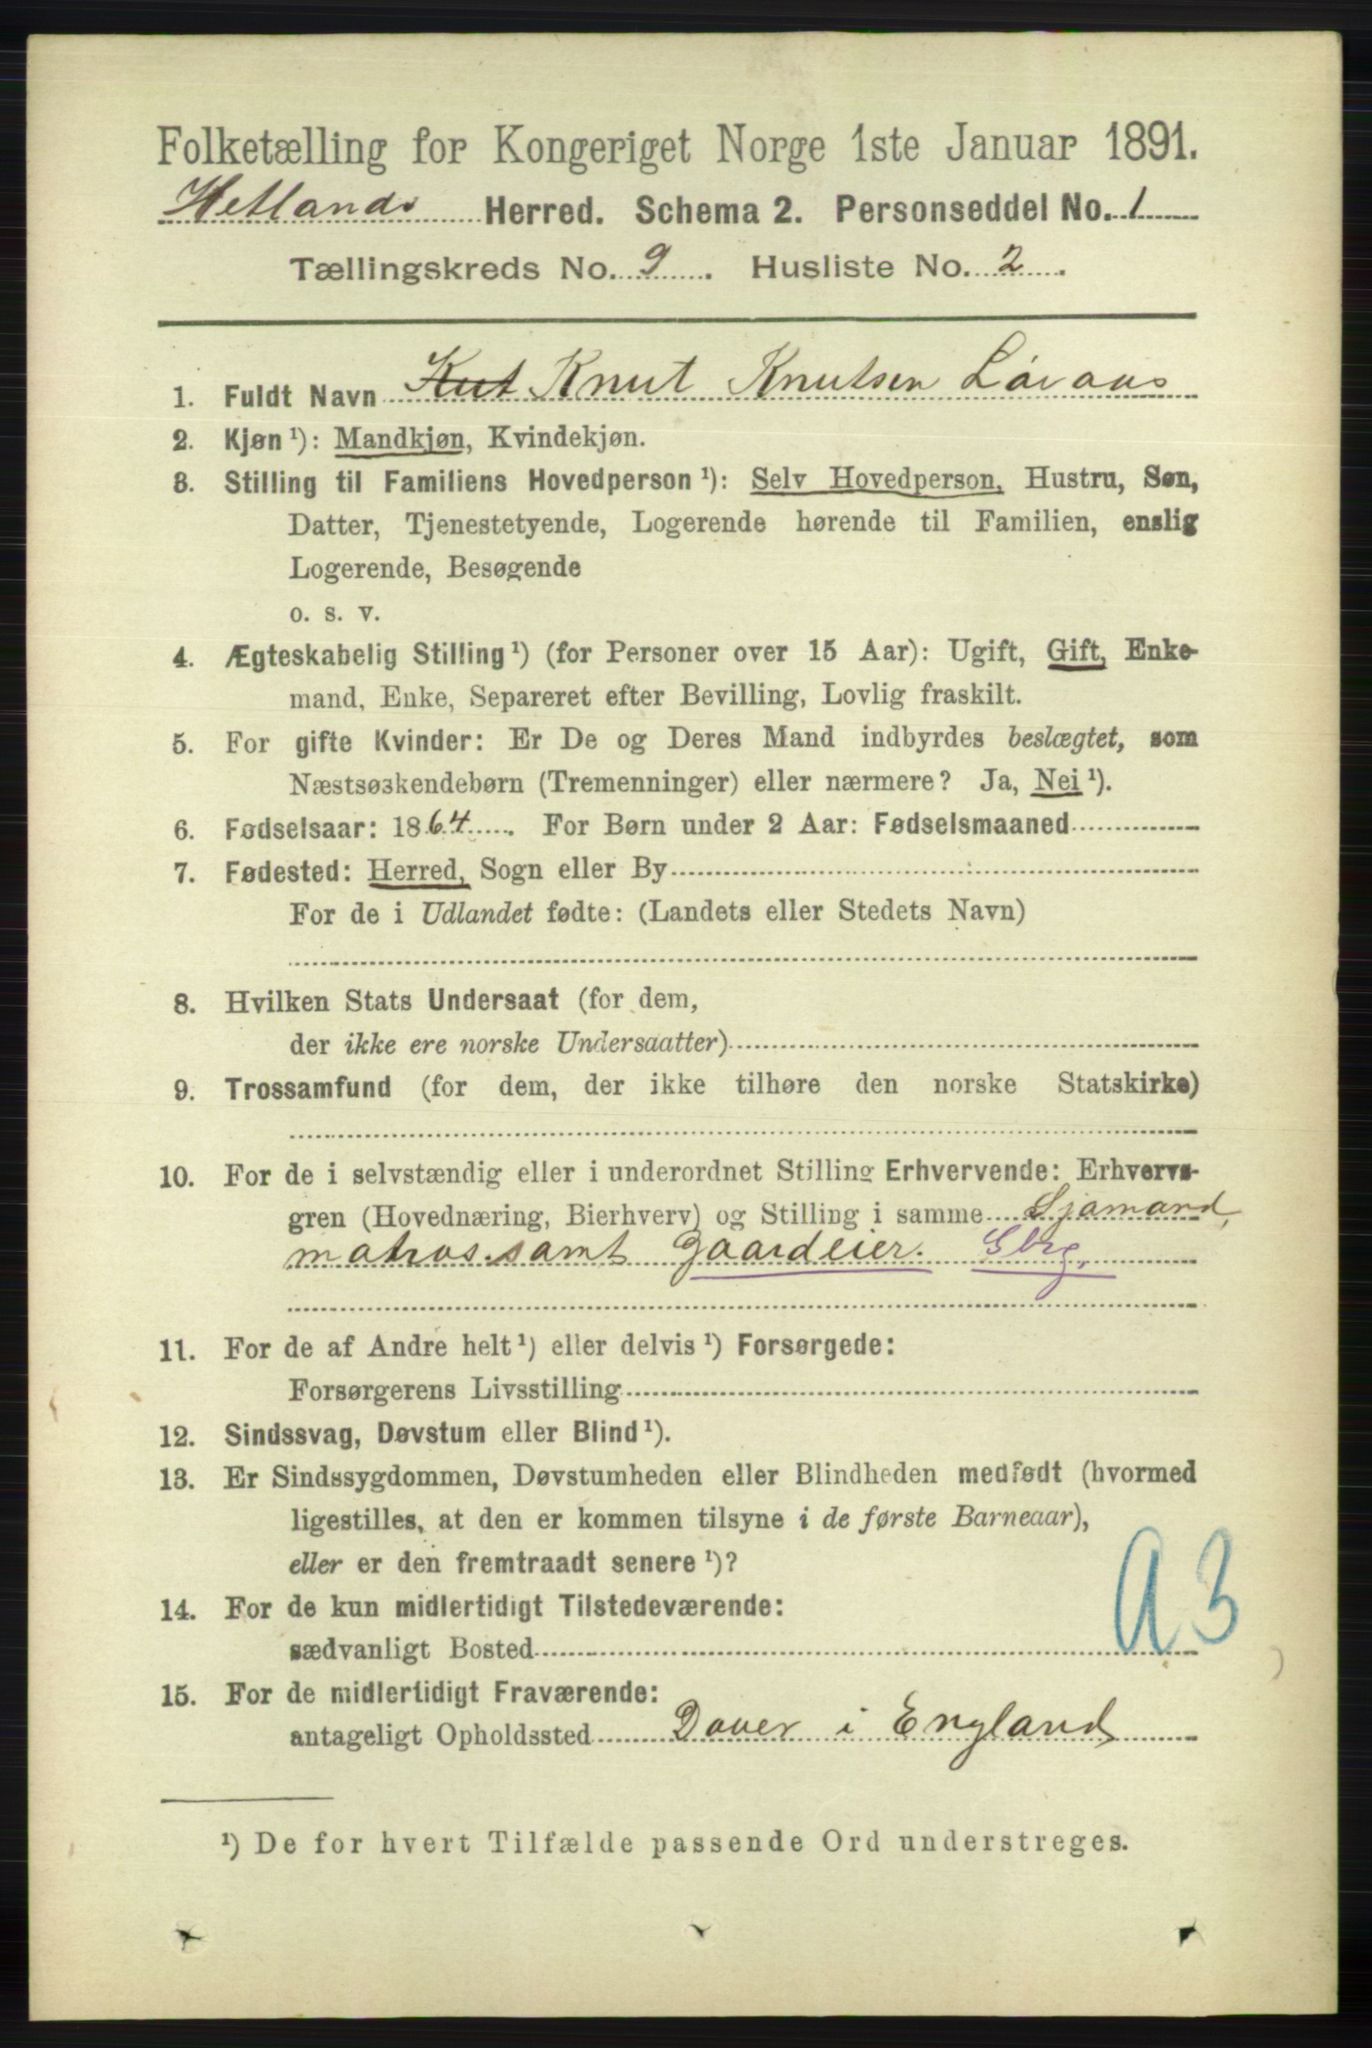 Folketælling for Kongeriget Norge 1ste Januar 1891.
Hetlands Herred. Schema 2. Personseddel No. 1
Tællingskreds No. 9. Husliste No. 2.
1. Fuldt Navn Kut Knut Knutsen Løvaas
2. Kjøn ¹): Mandkjøn, Kvindekjøn.
3. Stilling til Familiens Hovedperson ¹): Selv Hovedperson, Hustru, Søn,
Datter, Tjenestetyende, Logerende hørende til Familien, enslig
Logerende, Besøgende
o. s. v.
4. Ægteskabelig Stilling ¹) (for Personer over 15 Aar): Ugift, Gift, Enke-
mand, Enke, Separeret efter Bevilling, Lovlig fraskilt.
5. For gifte Kvinder: Er De og Deres Mand indbyrdes beslægtet, som
Næstsøskendebørn (Tremenninger) eller nærmere? Ja, Nei ¹).
6. Fødselsaar: 1864. For Børn under 2 Aar: Fødselsmaaned
7. Fødested: Herred, Sogn eller By
For de i Udlandet fødte: (Landets eller Stedets Navn)
8. Hvilken Stats Undersaat (for dem,
der ikke ere norske Undersaatter)
9. Trossamfund (for dem, der ikke tilhøre den norske Statskirke)
10. For de i selvstændig eller i underordnet Stilling Erhvervende: Erhvervs-
gren (Hovednæring, Bierhverv) og Stilling i samme Sjømand,
matros. samt Gaardeier. Gbrg.
11. For de af Andre helt ¹) eller delvis ¹) Forsørgede:
Forsørgerens Livsstilling
12. Sindssvag, Døvstum eller Blind ¹).
13. Er Sindssygdommen, Døvstumheden eller Blindheden medfødt (hvormed
ligestilles, at den er kommen tilsyne i de første Barneaar),
eller er den fremtraadt senere ¹)?
A 3
14. For de kun midlertidigt Tilstedeværende:
sædvanligt Bosted
15. For de midlertidigt Fraværende:
antageligt Opholdssted Dover i England
¹) De for hvert Tilfælde passende Ord understreges.